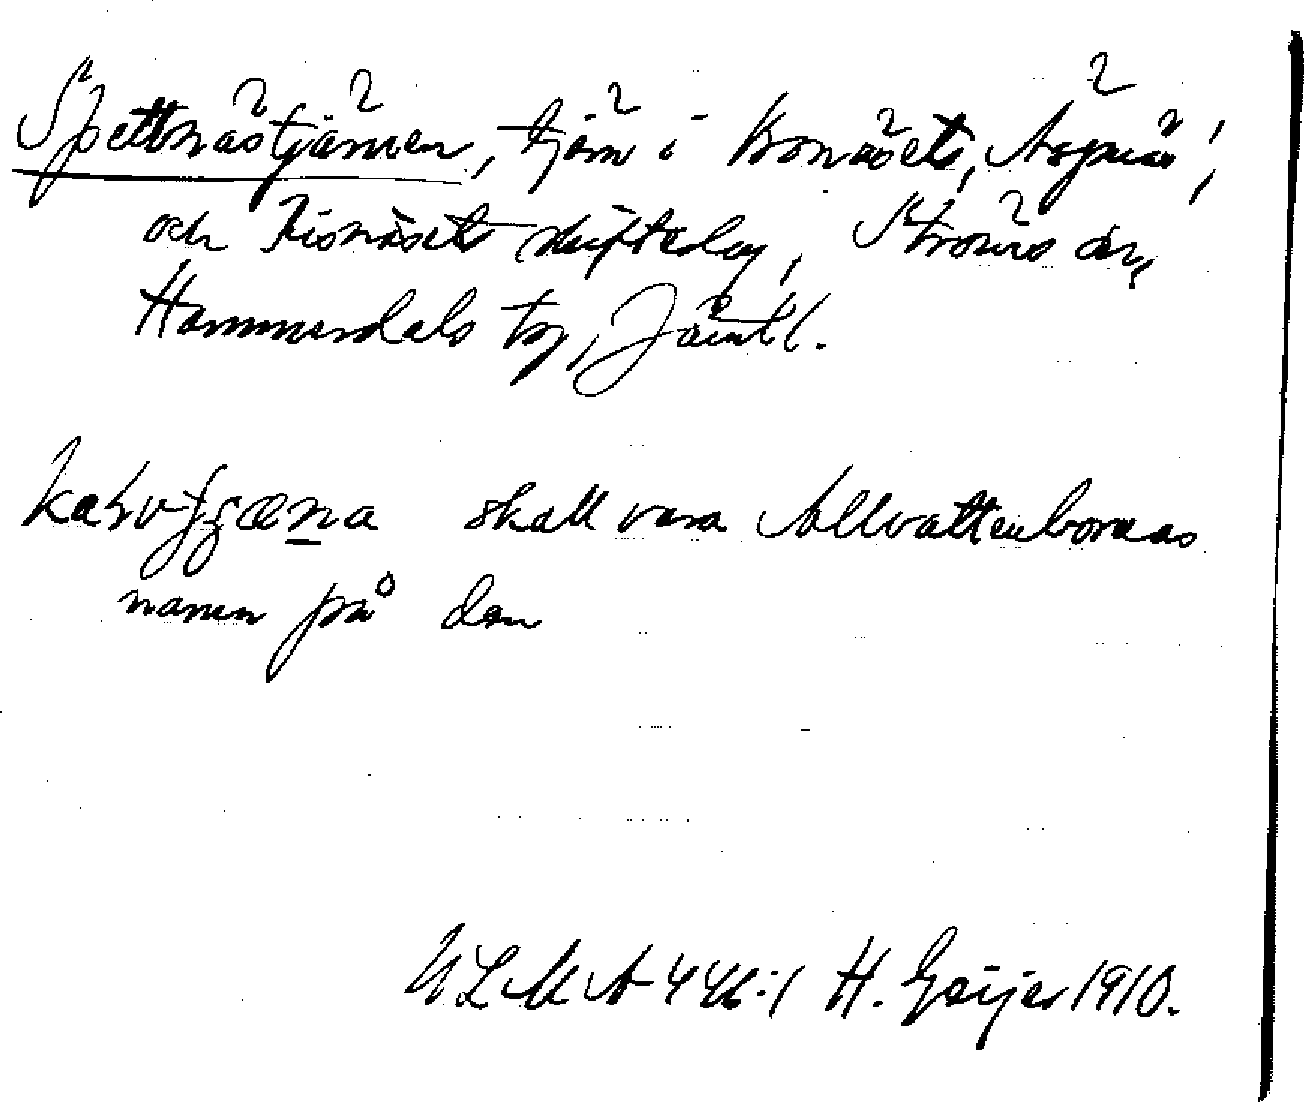 Spettnästjärnen, tjärn i Kronäsets, Aspnäs',
och Risnäset skiftelag, Ströms sn,
Hammerdals tg, Jämtl.
skall vara Allvattenbornas
namn på den
ULMA 446:1 H. Geijer 1910.